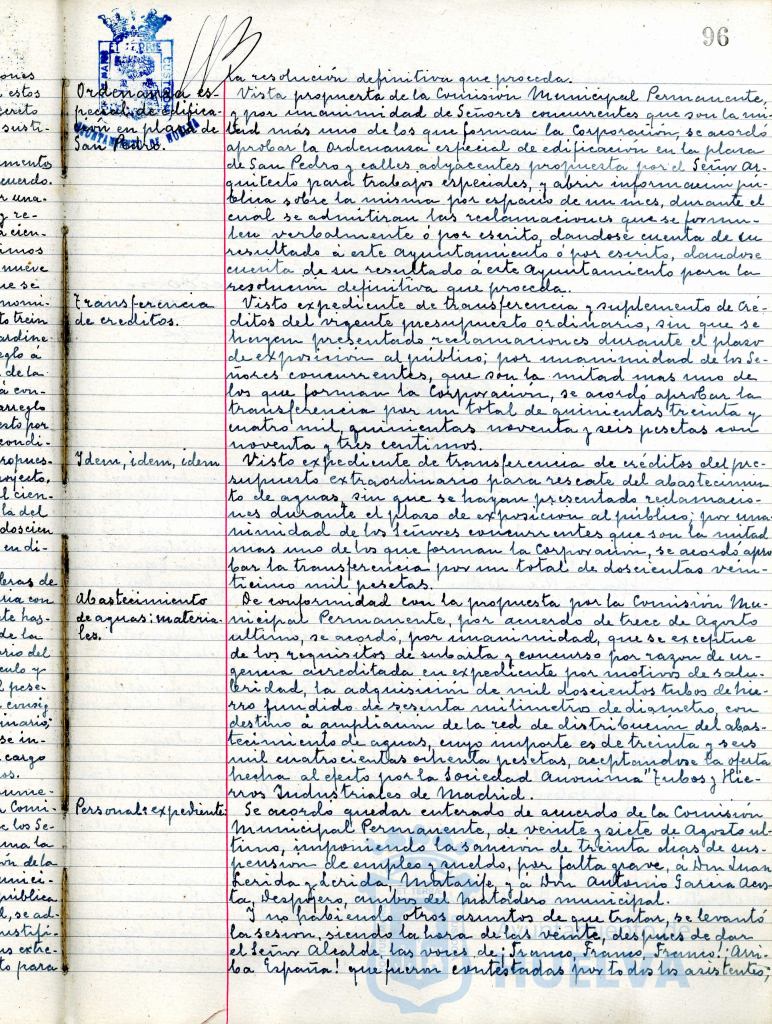 96
la resolución definitiva que proceda.
Ordenanza es-
pecial de edifica-
ción en plaza de
San Pedro.
Vista propuesta de la Comisión Municipal Permanente,
y por unanimidad de Señores concurrentes que son la mi-
tad más uno de los que forman la Corporación, se acordó
aprobar la Ordenanza especial de edificación en la plaza
de San Pedro y calles adyacentes propuesta por el Señor Ar-
quitecto para trabajos especiales, y abrir información pú-
blica sobre la misma por espacio de un mes, durante el
cual se admitiran las reclamaciones que se formu-
len verbalmente ó por escrito, dandose cuenta de su
resultado á este Ayuntamiento ó por escrito, dandose
cuenta de su resultado á este Ayuntamiento para la
resolución definitiva que proceda.
Transferencia
de creditos.
Visto expediente de transferencia y suplemento de cré-
ditos del vigente presupuesto ordinario, sin que se
hayan presentado reclamaciones durante el plazo
de exposición al público; por unanimidad de los Se-
ñores concurrentes, que son la mitad mas uno de
los que forman la Corporación, se acordó aprobar la
transferencia por un total de quinientas treinta y
cuatro mil, quinientas noventa y seis pesetas con
noventa y tres centimos.
Idem, idem, idem
Visto expediente de transferencia de créditos del pre-
supuesto extraordinario para rescate del abastecimien-
to de aguas, sin que se hayan presentado reclamacio-
nes durante el plazo de exposición al público; por una-
nimidad de los Señores concurrentes que son la mitad
mas uno de los que forman la Corporación, se acordó apro-
bar la transferencia por un total de doscientas vein-
ticinco mil pesetas.
Abastecimiento
de aguas: materia-
les.
De conformidad con la propuesta por la Comisión Mu-
nicipal Permanente, por acuerdo de trece de Agosto
ultimo, se acordó, por unanimidad, que se exceptue
de los requisitos de subasta y concurso por razon de ur-
gencia acreditada en expediente por motivos de salu-
bridad, la adquisición de mil doscientos tubos de hie-
rro fundido de sesenta milimetros de diametro, con
destino á ampliación de la red de distribución del abas-
tecimiento de aguas, cuyo importe es de treinta y seis
mil cuatrocientas ochenta pesetas, aceptandose la oferta
hecha al efecto por la Sociedad Anonima "Tubos y Hie-
rros Industriales de Madrid.
Personal: expediente.
Se acordó quedar enterado de acuerdo de la Comisión
Municipal Permanente, de veinte y siete de Agosto ul-
timo, imponiendo la sanción de treinta dias de sus-
pensión de empleo y sueldo, por falta grave, á Don Juan
Lerida y Lerida, Matarife, y á Don Antonio Garcia Acos-
ta, Despojero, ambos del Matadero municipal.
Y no habiendo otros asuntos de que tratar, se levantó
la sesión, siendo la hora de las veinte, despues de dar
el Señor Alcalde, las voces de ¡Franco, Franco, Franco! ¡Arri-
ba España! que fueron contestadas por todos los asistentes;
Ayuntamiento de
HUELVA